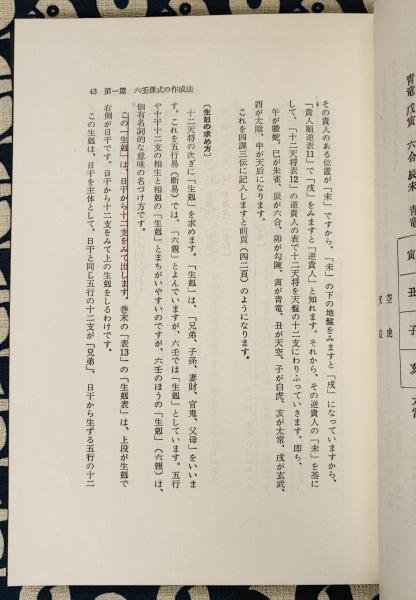 43 第一篇 六壬課式の作成法
その貴人のある位置が「未」ですから、「未」の下の地盤をみますと「戌」になっていますから、
「貴人順逆表11」で「戌」をみますと「逆貴人」と知れます。それから、その逆貴人の「未」を基に
して、「十二天将表12」の逆貴人の表で十二天将を天盤の十二支にわりふっていきます。即ち、
午が螣蛇、巳が朱雀、辰が六合、卯が勾陳、寅が青竜、丑が天空、子が白虎、亥が太常、戌が玄武、
酉が太陰、申が天后になります。
これを四課三伝に記入しますと前頁(四二頁)のようになります。
〔生剋の求め方〕
十二天将の次ぎに「生剋」を求めます。「生剋」は、「兄弟、子孫、妻財、官鬼、父母」をいいま
す。これを五行易(断易)では、「六親」とよんでいますが、六壬では「生剋」としています。五行
や十干十二支の相生と相剋の「生剋」とまちがいやすいのですが、六壬のほうの「生剋」(六親)は、
個有名詞的な意味の名づけ方です。
この「生剋」は、日干から十二支をみて出します。巻末の「表13」の「生剋表」は、上段が生剋で
右側が日干です。日干から十二支をみて上の生剋をしるわけです。
この生剋は、日干を主体として、日干と同じ五行の十二支が「兄弟」、日干から生ずる五行の十二
青竜 戊寅 六合 辰未 青竜
寅
丑
子
亥
空
虎